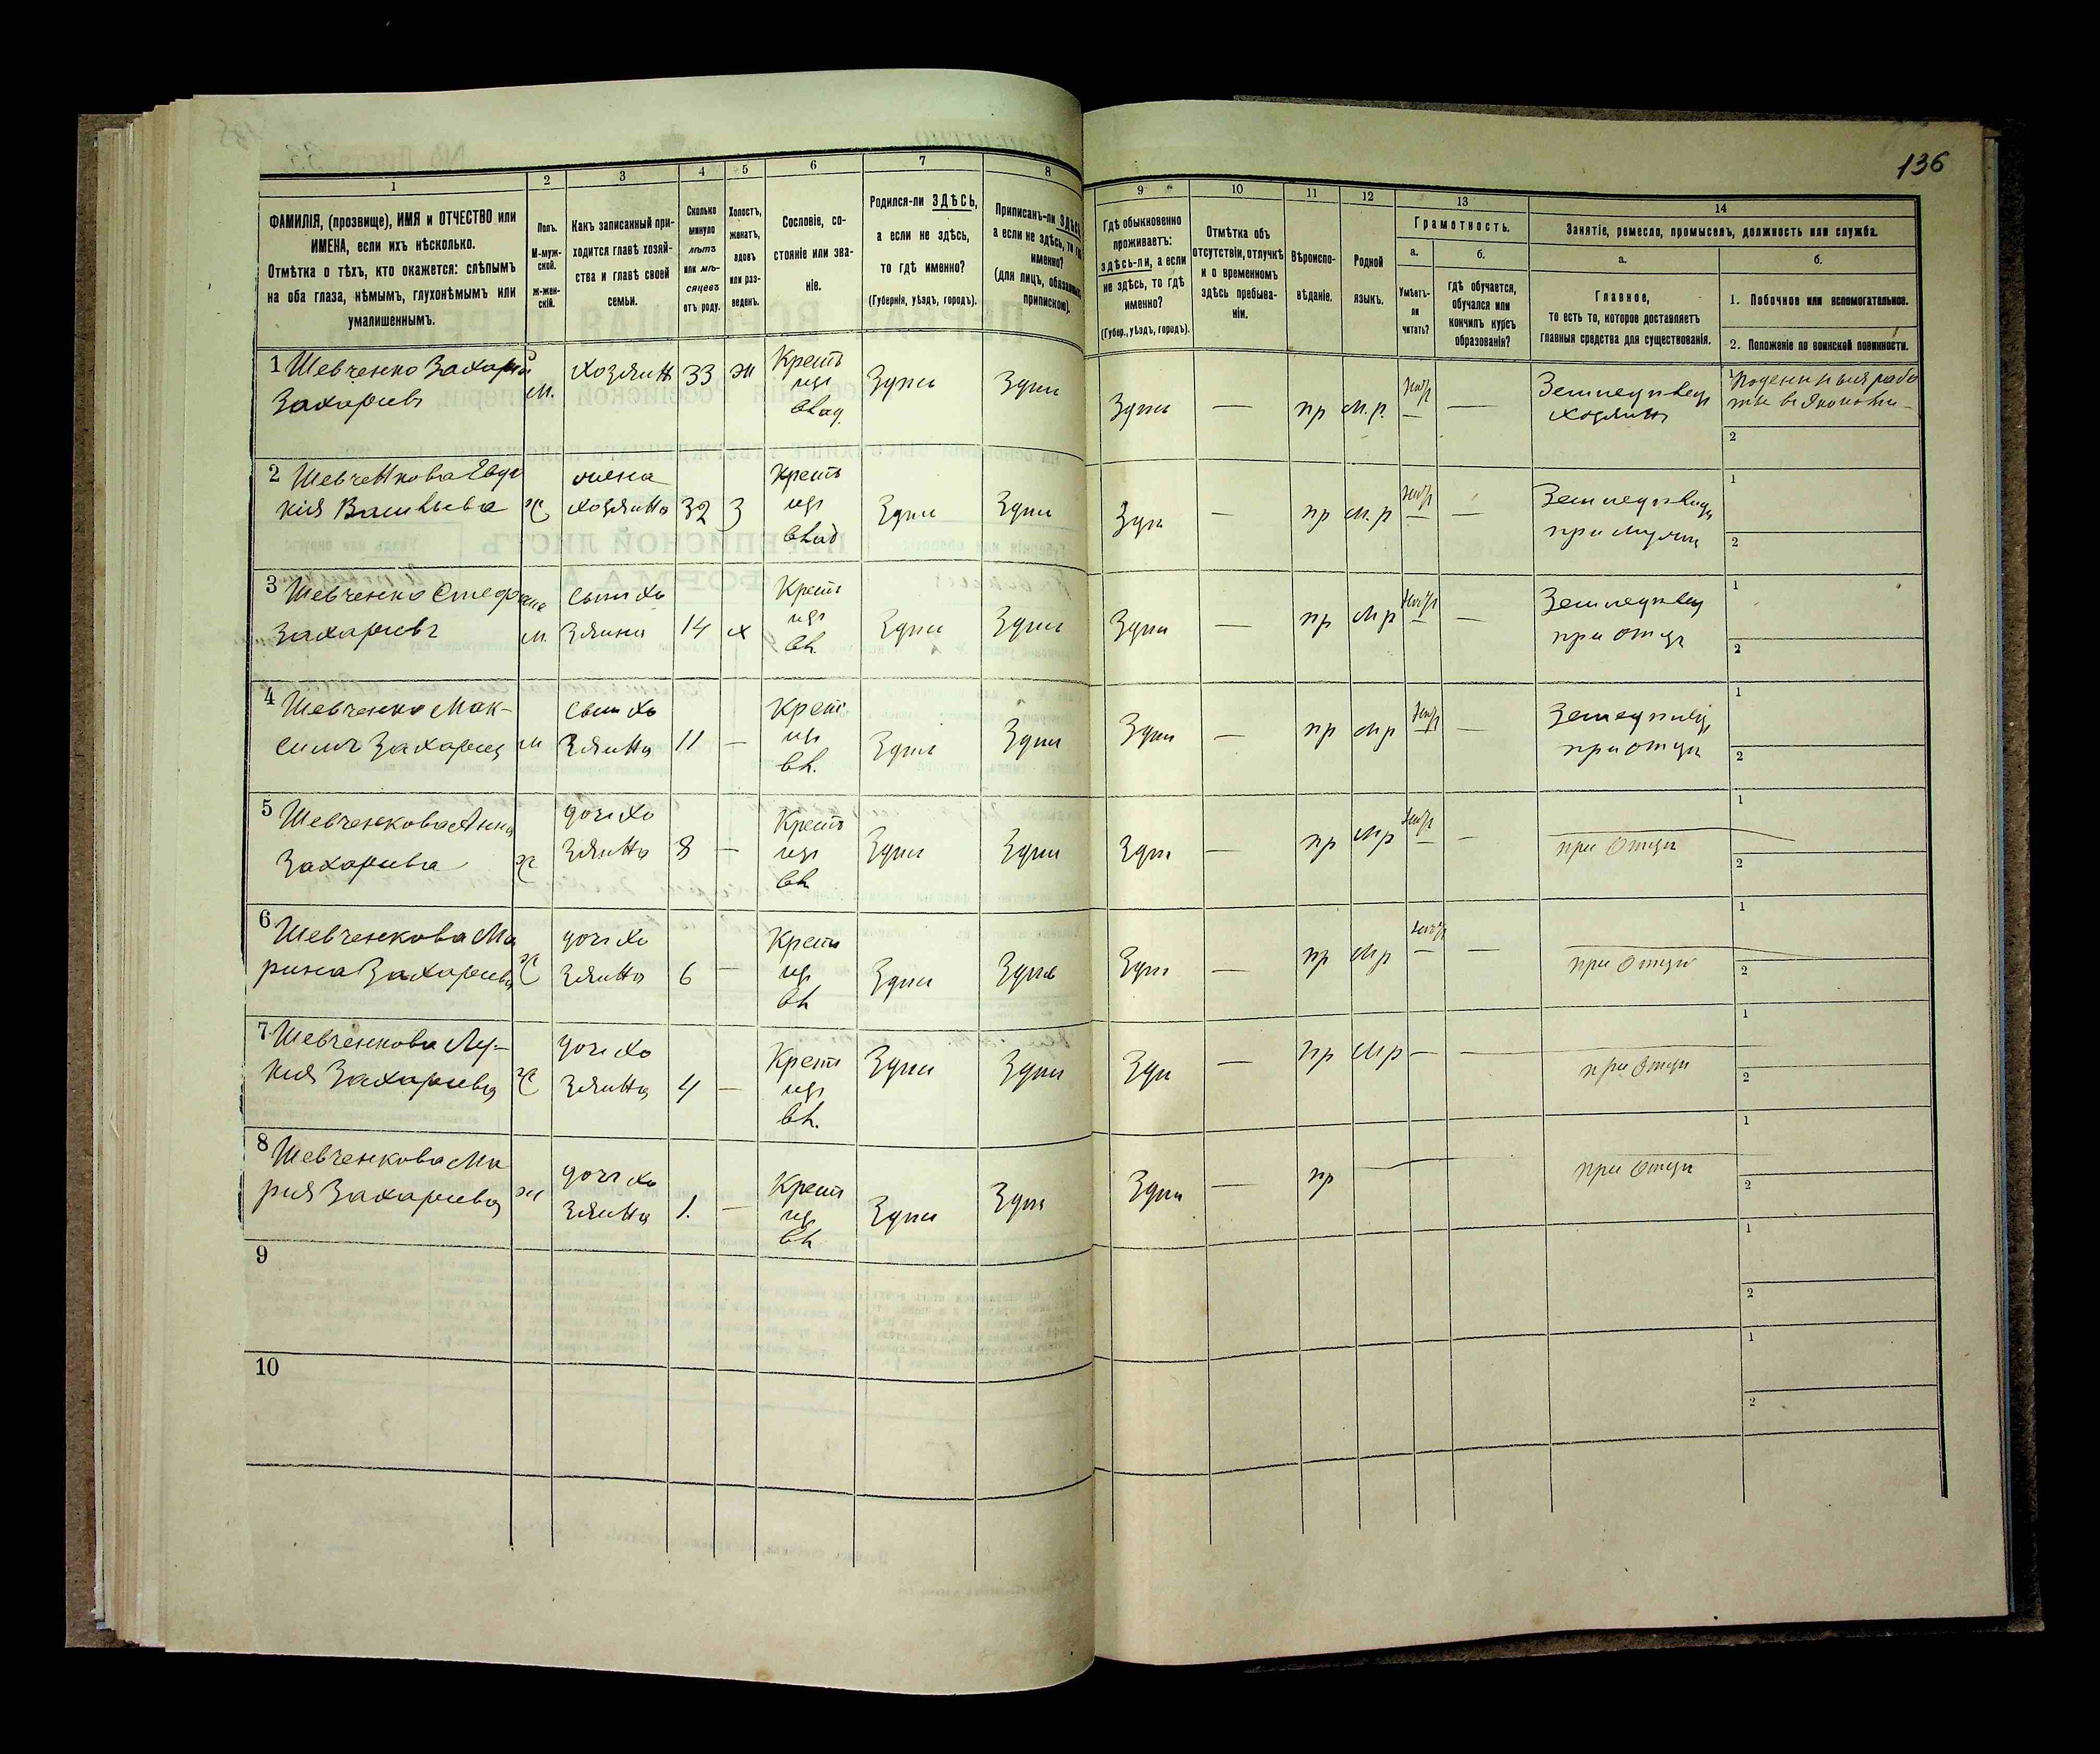 136
1
2
3
4
5
6
7
8
9
10
11
12
13
14
ФАМИЛІЯ, (прозвище), ИМЯ и ОТЧЕСТВО или
ИМЕНА, если ихъ нѣсколько.
Отмѣтка о тѣхъ, кто окажется: слѣпымъ
на оба глаза, нѣмымъ, глухонѣмымъ или
умалишеннымъ.
Полъ.
М-муж-
ской.
Ж-жен-
скій.
Какъ записанный при-
ходится главѣ хозяй-
ства и главѣ своей
семьи.
Сколько
минуло
лѣтъ
или мѣ-
сяцевъ
отъ роду.
Холостъ,
женатъ,
вдовъ
или раз-
веденъ.
Сословіе, со-
стояніе или зва-
ніе.
Родился-ли ЗДѢСЬ,
а если не здѣсь,
то гдѣ именно?
(Губернія, уѣздъ, городъ).
Приписанъ-ли ЗДѢСЬ,
а если не здѣсь, то гдѣ
именно?
(для лицъ, обязанныхъ
припискою).
Гдѣ обыкновенно
проживаетъ:
здѣсь-ли, а если
не здѣсь, то гдѣ
именно?
(Губер., уѣздъ, городъ).
Отмѣтка объ
отсутствіи, отлучкѣ
и о временномъ
здѣсь пребыва-
ніи.
Вѣроиспо-
вѣданіе.
Родной
языкъ.
Грамотность.
а.
Умѣетъ-
ли
читать?
б.
гдѣ обучается,
обучался или
кончилъ курсъ
образованія?
Занятіе, ремесло, промыселъ, должность или служба.
а.
Главное,
то есть то, которое доставляетъ
главныя средства для существованія.
б.
1. Побочное или вспомогательное.
2. Положеніе по воинской повинности.
1 Шевченко Захарій
Захаріевъ
м.
хозяинъ
33
ж
Крест
влад.
Здѣсь
Здѣсь
Здѣсь
—
пр
м.р.
—
—
хозяинъ
1
2
2 Шевченкова Евдо
кія Васильева
ж
жена
хозяина
32
З
Крест
влад
Здѣсь
Здѣсь
Здѣсь
—
пр
м.р
—
—
1
2
3 Шевченко Стефанъ
Захаріевъ
м
сынъ хо
зяина
14
х
Крест
вл.
Здѣсь
Здѣсь
Здѣсь
—
пр
м р
—
—
при отцѣ
1
2
4 Шевченко Мак-
симъ Захаріев
м
сынъ хо
зяина
11
—
Крест
вл.
Здѣсь
Здѣсь
Здѣсь
—
пр
м р
—
—
при отцѣ
1
2
5 Шевченкова Анна
Захаріева
ж
дочь хо
зяина
8
—
Крест
вл
Здѣсь
Здѣсь
Здѣсь
—
пр
м р
—
—
при отцѣ
1
2
6 Шевченкова Ма
рина Захаріева
ж
дочь хо
зяина
6
—
Крест
вл
Здѣсь
Здѣсь
Здѣсь
—
пр
м р
—
—
при отцѣ
1
2
7 Шевченкова Лу-
кія Захаріева
ж
дочь хо
зяина
4
—
Крест
вл.
Здѣсь
Здѣсь
Здѣсь
—
пр
м р
—
—
при отцѣ
1
2
8 Шевченкова Ма
рія Захаріева
ж
дочь хо
зяина
1.
—
Крест
вл
Здѣсь
Здѣсь
Здѣсь
—
пр
при отцѣ
1
2
9
1
2
10
1
2